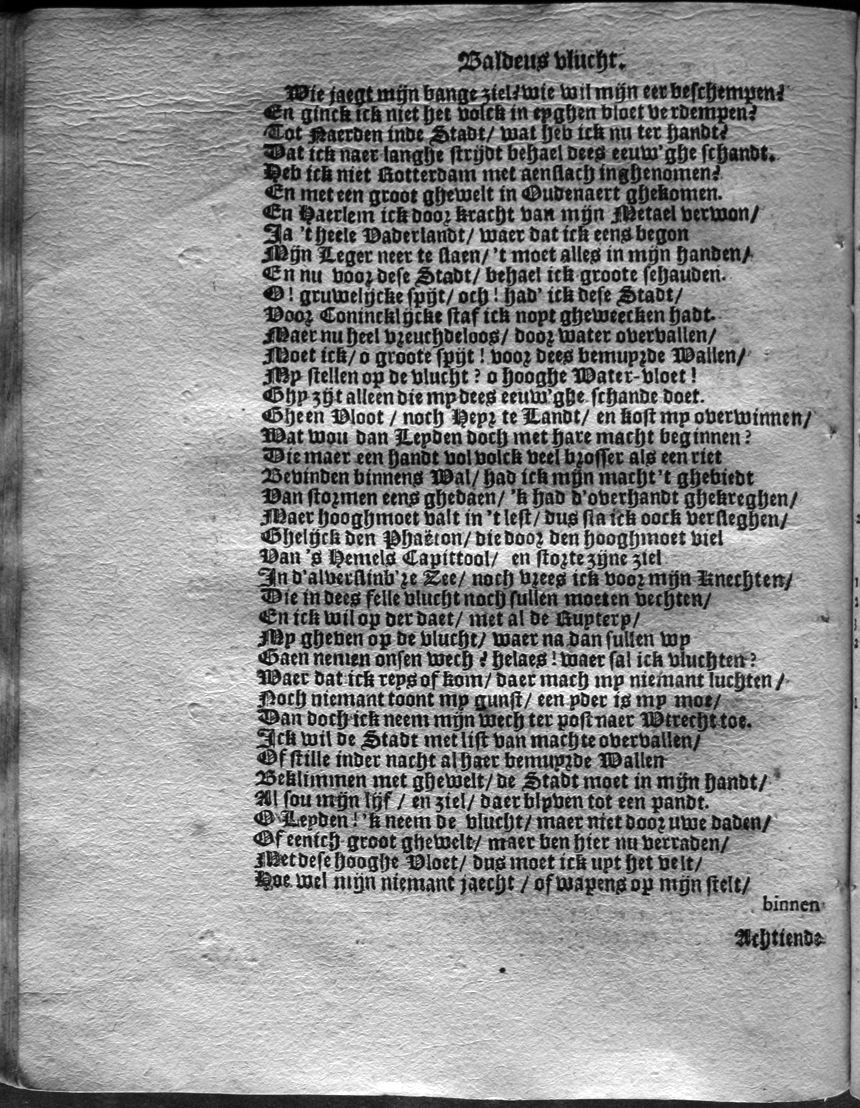 Baldeus vlucht.
Wie jaegt mijn bange ziel? wie wil mijn eer beschempen?
En ginck ick niet het volck in eyghen bloet verdempen?
Tot Naerden inde Stadt/ wat heb ick nu ter handt?
Dat ick naer langhe strijdt behael dees eeuw'ghe schandt.
Heb ick niet Rotterdam met aenslach inghenomen?
En met een groot ghewelt in Oudenaert ghekomen.
En Haerlem ick door kracht van mijn Metael verwon/
Ja 't heele Vaderlandt/ waer dat ick eens begon
Mijn Leger neer te slaen/ 't moet alles in mijn handen/
En nu voor dese Stadt/ behael ick groote schanden.
O! gruwelijcke spijt/ och! had' ick dese Stadt/
Voor Conincklijcke staf ick noyt gheweecken hadt.
Maer nu heel vreuchdeloos/ door water overvallen/
Moet ick/ o groote spijt! voor dees bemuyrde Wallen/
My stellen op de vlucht? o hooghe Water-vloet!
Ghy zijt alleen die my dees eeuw'ghe schande doet.
Gheen Vloot/ noch Heyr te Landt/ en kost my overwinnen/
Wat wou dan Leyden doch met hare macht beginnen?
Die maer een handt vol volck veel brosser als een riet
Bevinden binnens Wal/ had ick mijn macht 't ghebiedt
Van stormen eens ghedaen/ 'k had d'overhandt ghekreghen/
Maer hooghmoet valt in 't lest/ dus sta ick oock versleghen/
Ghelijck den Phaëton/ die door den hooghmoet viel
Van 's Hemels Capittool/ en stortte zijne ziel
In d'alverslind're Zee/ noch vrees ick voor mijn Knechten/
Die in dees felle vlucht noch sullen moeten vechten/
En ick wil op der daet/ met al de Ruytery/
My gheven op de vlucht/ waer na dan sullen wy
Gaen nemen onsen wech? helaes! waer sal ick vluchten?
Waer dat ick reys of kom/ daer mach my niemant luchten/
Noch niemant toont my gunst/ een yder is my moe/
Dan doch ick neem mijn wech ter post naer Wtrecht toe.
Ick wil de Stadt met list van machte overvallen/
Of stille inder nacht al haer bemuyrde Wallen
Beklimmen met ghewelt/ de Stadt moet in mijn handt/
Al sou mijn lijf/ en ziel/ daer blyven tot een pandt.
O Leyden! 'k neem de vlucht/ maer niet door uwe daden/
Of eenich groot ghewelt/ maer ben hier nu verraden/
Met dese hooghe Vloet/ dus moet ick uyt het velt/
Hoe wel mijn niemant jaecht/ of wapens op mijn stelt/
binnen
Achtiende